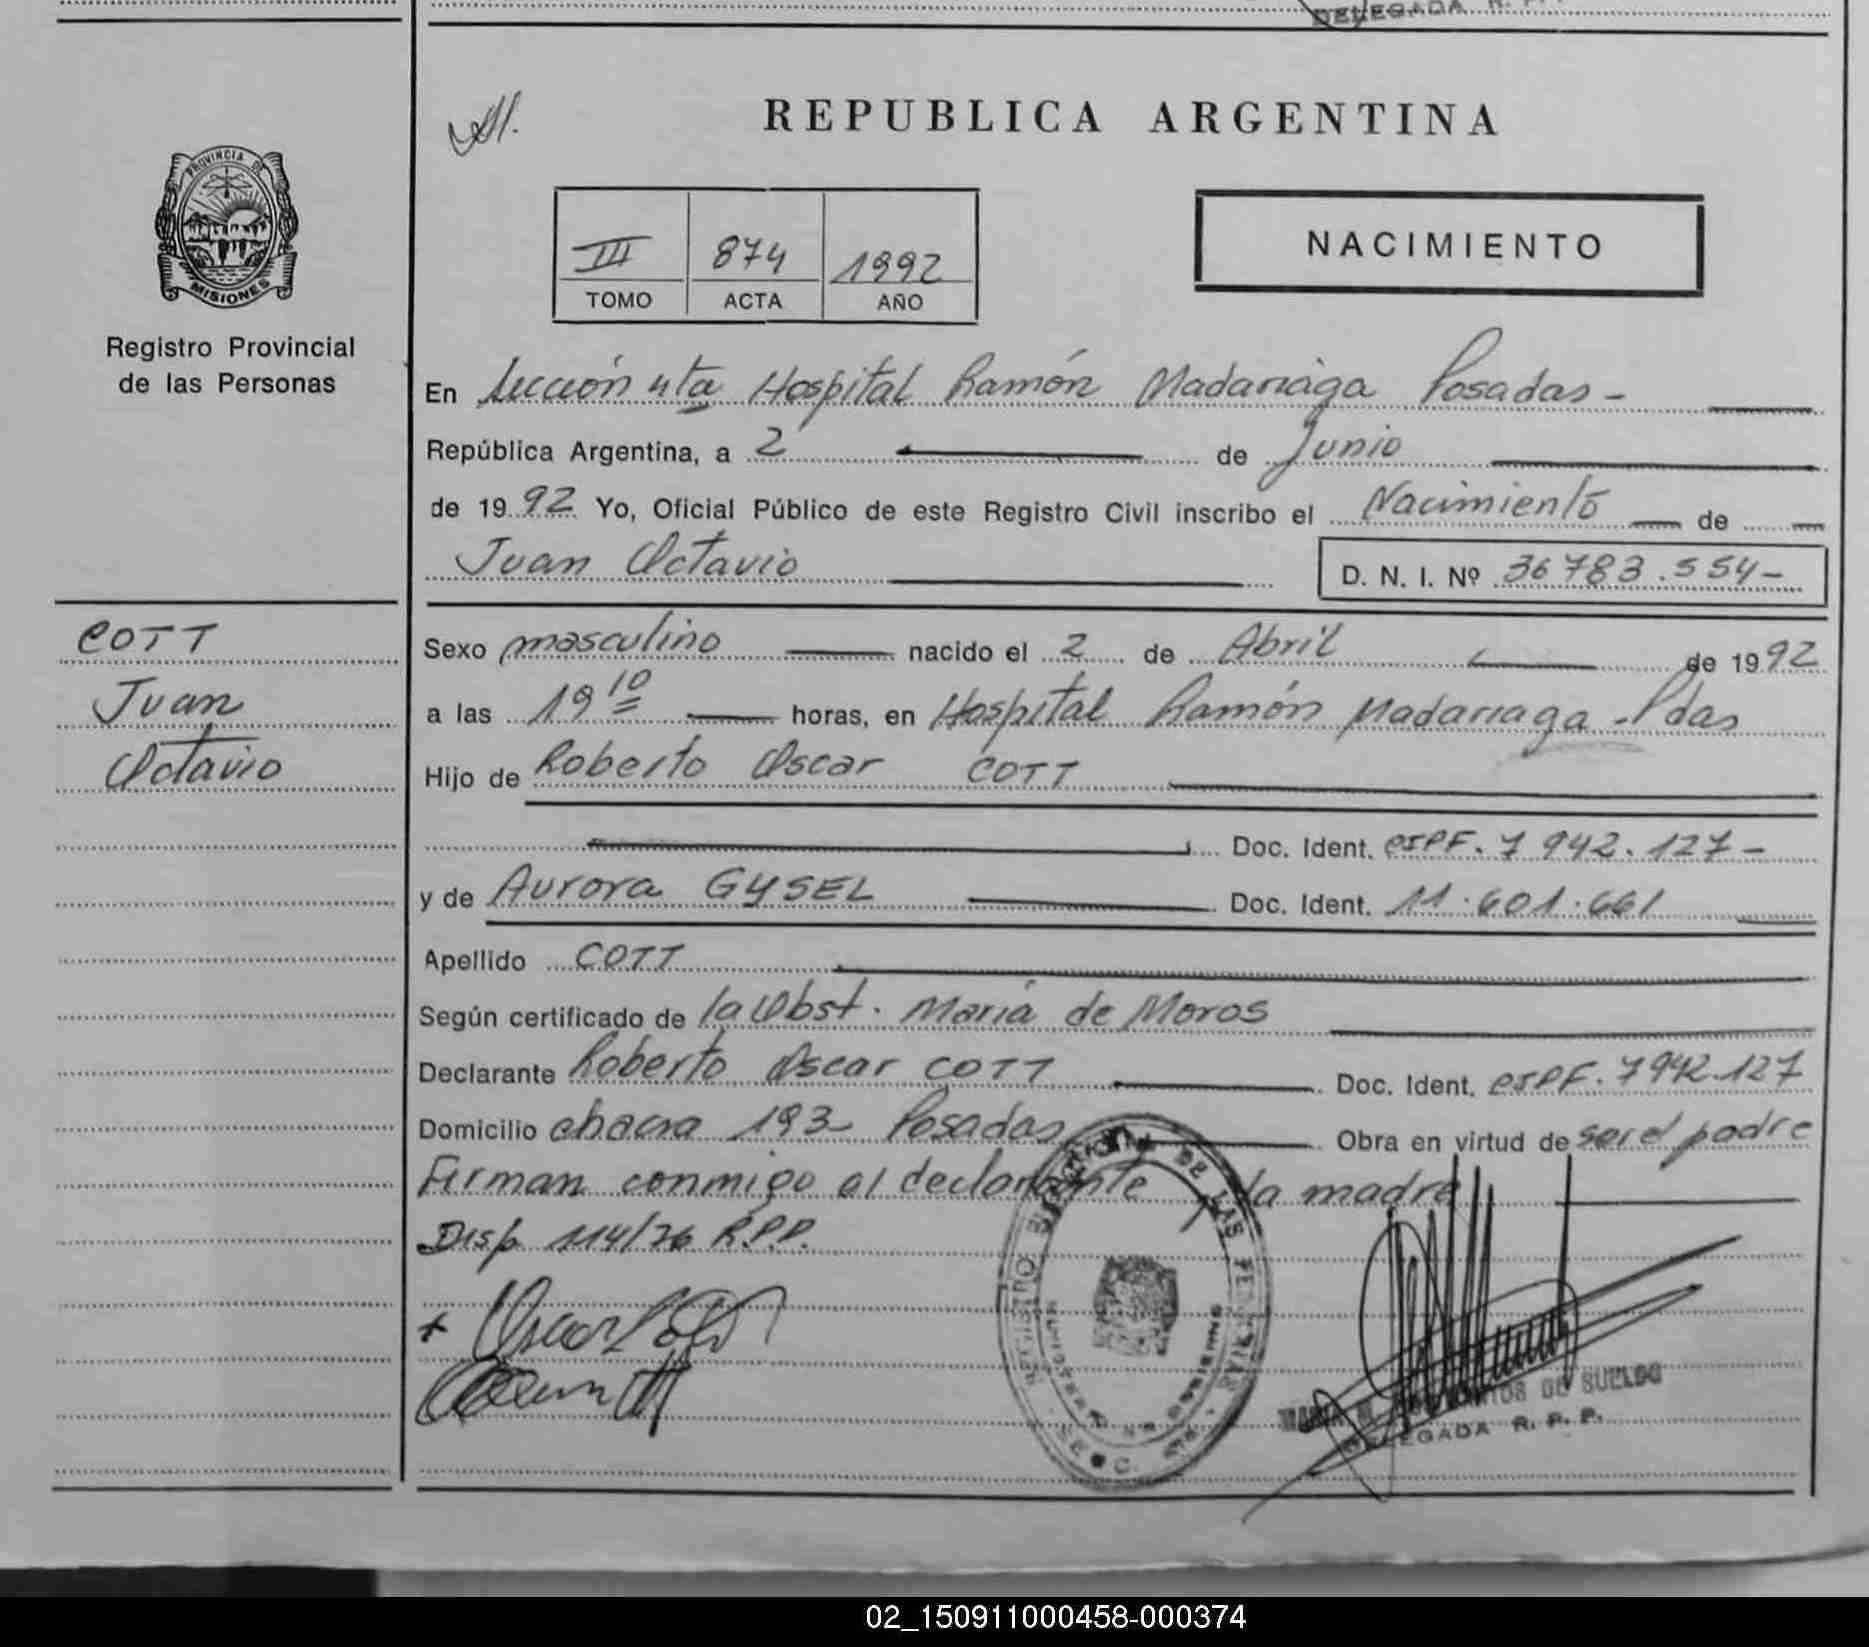 DELEGADA R. P.
REPUBLICA ARGENTINA
PROVINCIA DE
MISIONES
Registro Provincial
de las Personas
III 874 1992
TOMO ACTA AÑO
NACIMIENTO
En Sección 4ta Hospital Ramón Madariaga Posadas -
República Argentina, a 2 de Junio
de 1992 Yo, Oficial Público de este Registro Civil inscribo el Nacimiento de
Juan Octavio D. N. I. Nº 36783.554-
COTT
Juan
Octavio
Sexo masculino nacido el 2 de Abril de 1992
a las 19 10 horas, en Hospital Ramón Madariaga - Pdas
Hijo de Roberto Oscar COTT
Doc. Ident. CIPF. 7 942.127-
y de Aurora GYSEL Doc. Ident. 11.601.661
Apellido COTT
Según certificado de la Obst. María de Moros
Declarante Roberto Oscar COTT Doc. Ident. CIPF. 7942.127
Domicilio chacra 193 Posadas Obra en virtud de ser el padre
Firman conmigo el declarante y la madre
Disp. 114/76 R.P.P.
DE SUELDO
DELEGADA R. P. P.
02_150911000458-000374